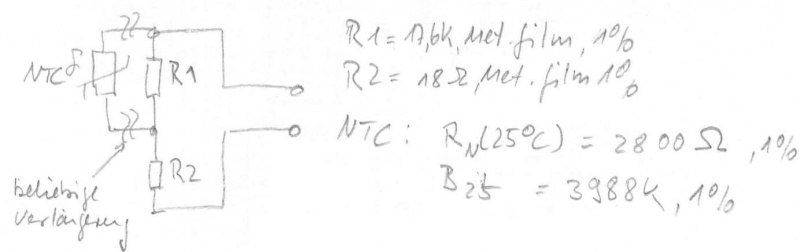 NTC ϑ
R1
R2
beliebige
Verlängerung
R1 = 17,6k, Met. film, 1%
R2 = 18Ω, Met. film 1%
NTC: R_N(25°C) = 2800Ω, 1%
B25 = 3988k, 1%